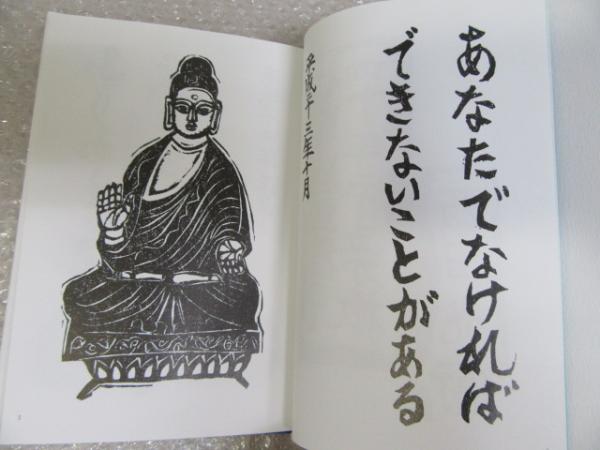 あなたでなければ
できないことがある
平成二十三年十月